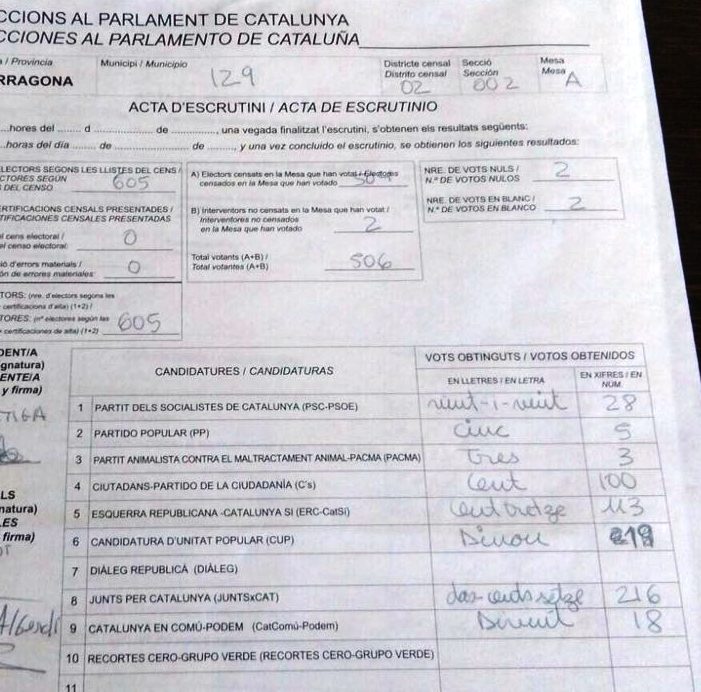 CCIONS AL PARLAMENT DE CATALUNYA
CCIONES AL PARLAMENTO DE CATALUÑA
/ Provincia Municipi / Municipio Districte censal Secció Mesa
RRAGONA 129 Distrito censal Sección Mesa
02 002 A
ACTA D'ESCRUTINI / ACTA DE ESCRUTINIO
...hores del ........ d ........ de ........, una vegada finalitzat l'escrutini, s'obtenen els resultats següents:
...horas del día ........ de ........ de ........, y una vez concluido el escrutinio, se obtienen los siguientes resultados:
ELECTORS SEGONS LES LLISTES DEL CENS /
CTORES SEGÚN
DEL CENSO 605
ERTIFICACIONS CENSALS PRESENTADES /
TIFICACIONES CENSALES PRESENTADAS
l cens electoral /
el censo electoral: 0
ió d'errors materials /
ón de errores materiales: 0
TORS: (nre. d'electors segons les
certificacions d'alta) (1+2) /
TORES: (nº electores según las
certificaciones de alta) (1+2) 605
A) Electors censats en la Mesa que han votat / Electores
censados en la Mesa que han votado 504
B) Interventors no censats en la Mesa que han votat /
Interventores no censados
en la Mesa que han votado 2
Total votants (A+B) /
Total votantes (A+B) 506
NRE. DE VOTS NULS / 2
N.º DE VOTOS NULOS
NRE. DE VOTS EN BLANC / 2
N.º DE VOTOS EN BLANCO
DENT/A
gnatura)
ENTE/A
y firma)
LS
natura)
LES
firma)
CANDIDATURES / CANDIDATURAS VOTS OBTINGUTS / VOTOS OBTENIDOS
EN LLETRES / EN LETRA EN XIFRES / EN NÚM.
1 PARTIT DELS SOCIALISTES DE CATALUNYA (PSC-PSOE) vint-i-vuit 28
2 PARTIDO POPULAR (PP) cinc 5
3 PARTIT ANIMALISTA CONTRA EL MALTRACTAMENT ANIMAL-PACMA (PACMA) tres 3
4 CIUTADANS-PARTIDO DE LA CIUDADANÍA (C's) Cent 100
5 ESQUERRA REPUBLICANA -CATALUNYA SÍ (ERC-CatSí) Cent tretze 113
6 CANDIDATURA D'UNITAT POPULAR (CUP) Dinou 19
7 DIÀLEG REPUBLICÀ (DIÀLEG)
8 JUNTS PER CATALUNYA (JUNTSxCAT) dos-cents setze 216
9 CATALUNYA EN COMÚ-PODEM (CatComú-Podem) Divuit 18
10 RECORTES CERO-GRUPO VERDE (RECORTES CERO-GRUPO VERDE)
11